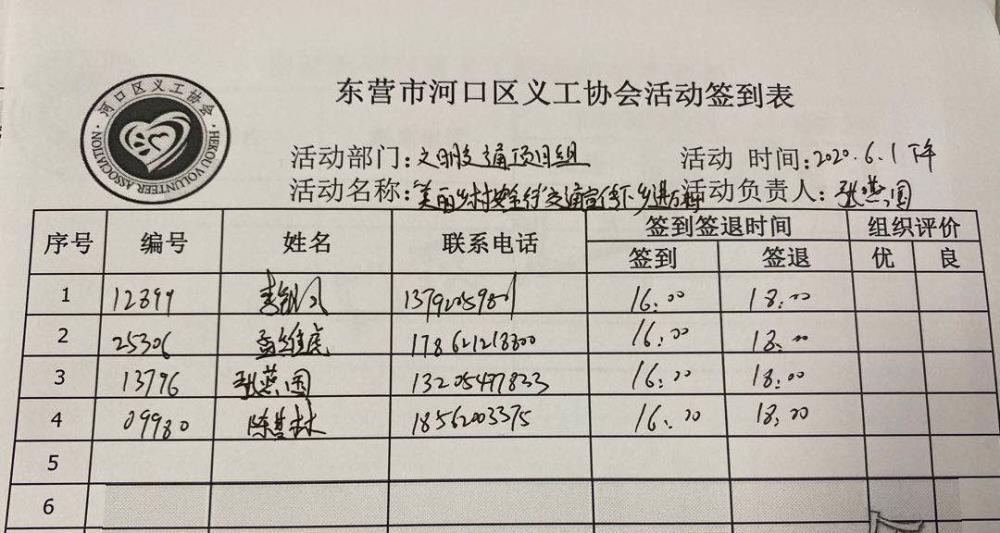 东营市河口区义工协会活动签到表
河口区义工协会
HEKOU VOLUNTEER ASSOCIATION
活动部门:文明交通项目组 活动 时间:2020.6.1下午
活动名称:"美丽乡村安全行"交通宣传下乡进 活动负责人:张燕国
序号 编号 姓名 联系电话 签到签退时间 组织评价
签到 签退 优 良
1 12399 16:00 18:00
2 25306 孟维虎 178621218800 16:00 18:00
3 13796 张燕国 13205497833 16:00 18:00
4 09980 陈其林 18562003375 16:00 18:00
5
6